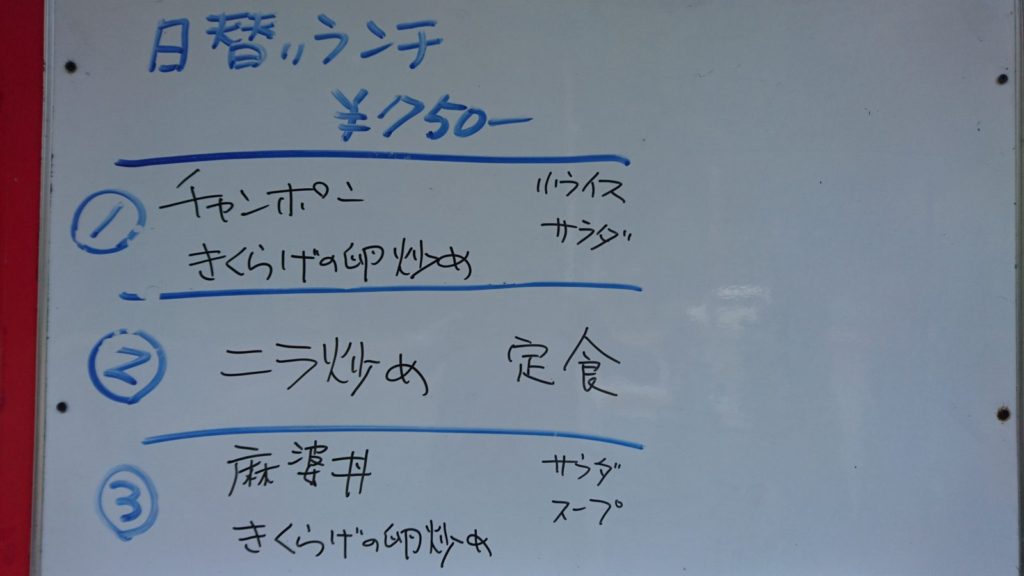 日替リランチ
¥750ー
① チャンポン 小ライス
サラダ
きくらげの卵炒め
② ニラ炒め 定食
③ 麻婆丼 サラダ
スープ
きくらげの卵炒め